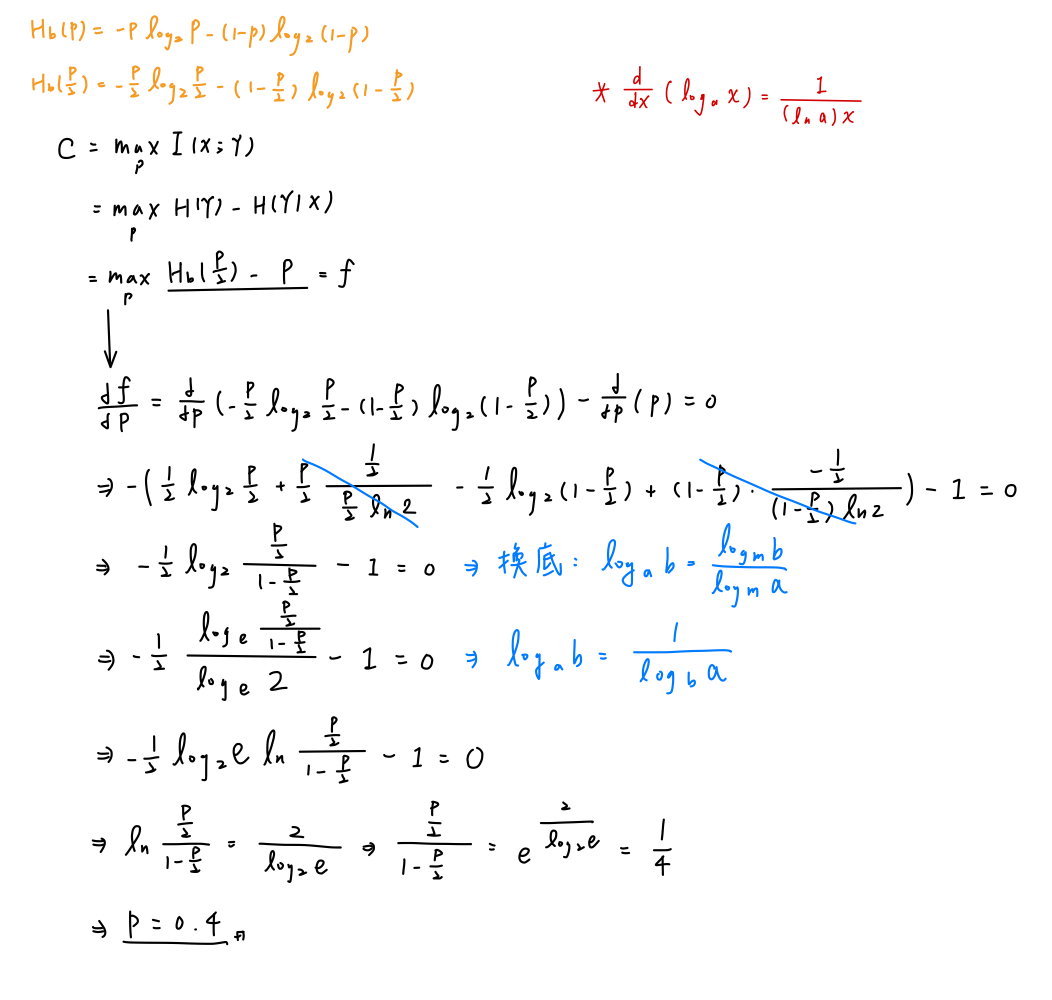 H_b(p) = -p log₂ p - (1-p) log₂ (1-p)
H_b(p/2) = -p/2 log₂ p/2 - (1-p/2) log₂ (1-p/2)
* d/dx (log_a x) = 1/((ln a) x)
C = max_p I(X;Y)
= max_p H(Y) - H(Y|X)
= max_p H_b(p/2) - p = f
↓
df/dp = d/dp (-p/2 log₂ p/2 - (1-p/2) log₂ (1-p/2)) - d/dp (p) = 0
⇒ -(1/2 log₂ p/2 + p/2 (1/2)/(p/2 ln 2) - 1/2 log₂ (1-p/2) + (1-p/2) · (-1/2)/((1-p/2) ln 2)) - 1 = 0
⇒ -1/2 log₂ (p/2)/(1-p/2) - 1 = 0 ⇒ 換底: log_a b = (log_m b)/(log_m a)
⇒ -1/2 (log_e (p/2)/(1-p/2))/(log_e 2) - 1 = 0 ⇒ log_a b = 1/(log_b a)
⇒ -1/2 log₂ e ln (p/2)/(1-p/2) - 1 = 0
⇒ ln (p/2)/(1-p/2) = 2/(log₂ e) ⇒ (p/2)/(1-p/2) = e^(2/(log₂ e)) = 1/4
⇒ p = 0.4